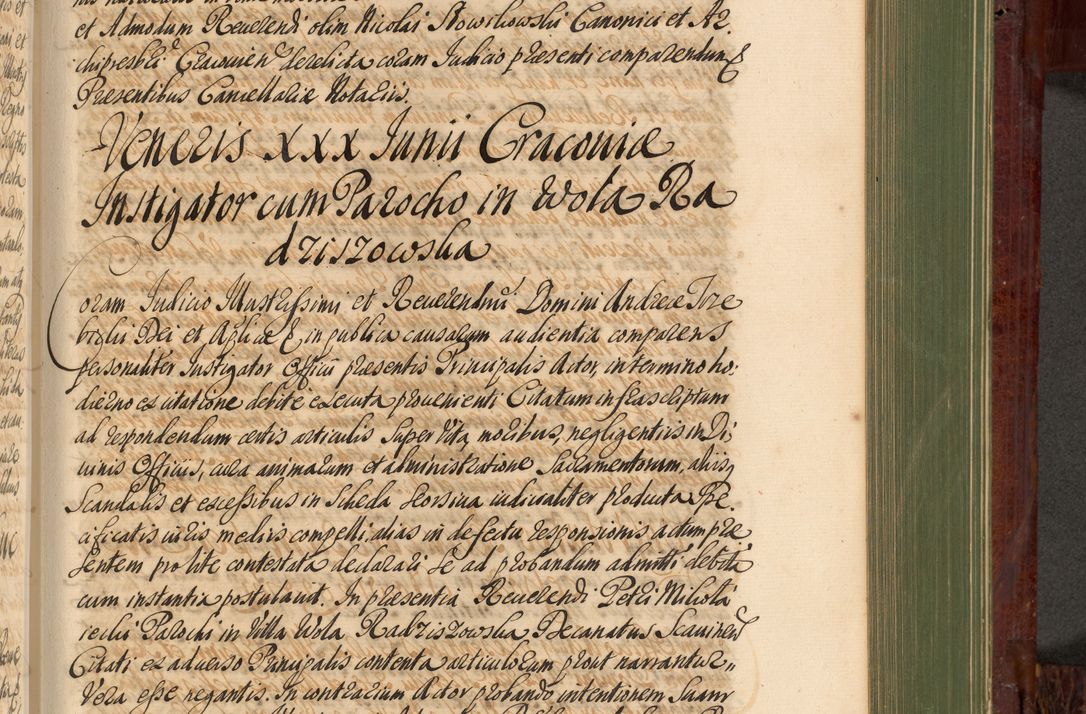 et Admodum Reuerendi olim Nicolai Słowikowski Canonici et Ar
chipresbri Cracouien derelicta coram Iudicio presenti comparendum &
Presentibus Cancellariæ Notariis.
Veneris XXX Iunii Cracouiæ
Instigator cum Parocho in Wola Ra
dziszowska
Coram Iudicio Illustrissimi et Reuerendmi Domini Andreæ Trze
bicki Dei et Aplicæ & in publica causarum audientia comparens
personaliter Instigator Officii presentis Principalis Actor, in termino ho,
dierno ex citatione debite executa prouenienti Citatum infrascriptum
ad respondendum certis articulis super vita, moribus, negligentiis in Di,
uinis Officiis, cura animarum et administratione Sacramentorum, aliis,
Scandalis et excessibus in Scheda seorsiua iudicialiter producta Spe,
cificatis iuris mediis compelli, alias in defectu responsionis actum præ
sentem pro lite contestata declarari se ad probandum admitti debita
cum instantia postulauit. In præsentia Reuerendi Petri Mikołá
iecki Parochi in Villa Wola Radziszowska Decanatus Scauinen
Citati ex aduerso Principalis contenta articulorum prout narrantur,,
Vera esse negantis. In contrarium Actor probando intentionem suam